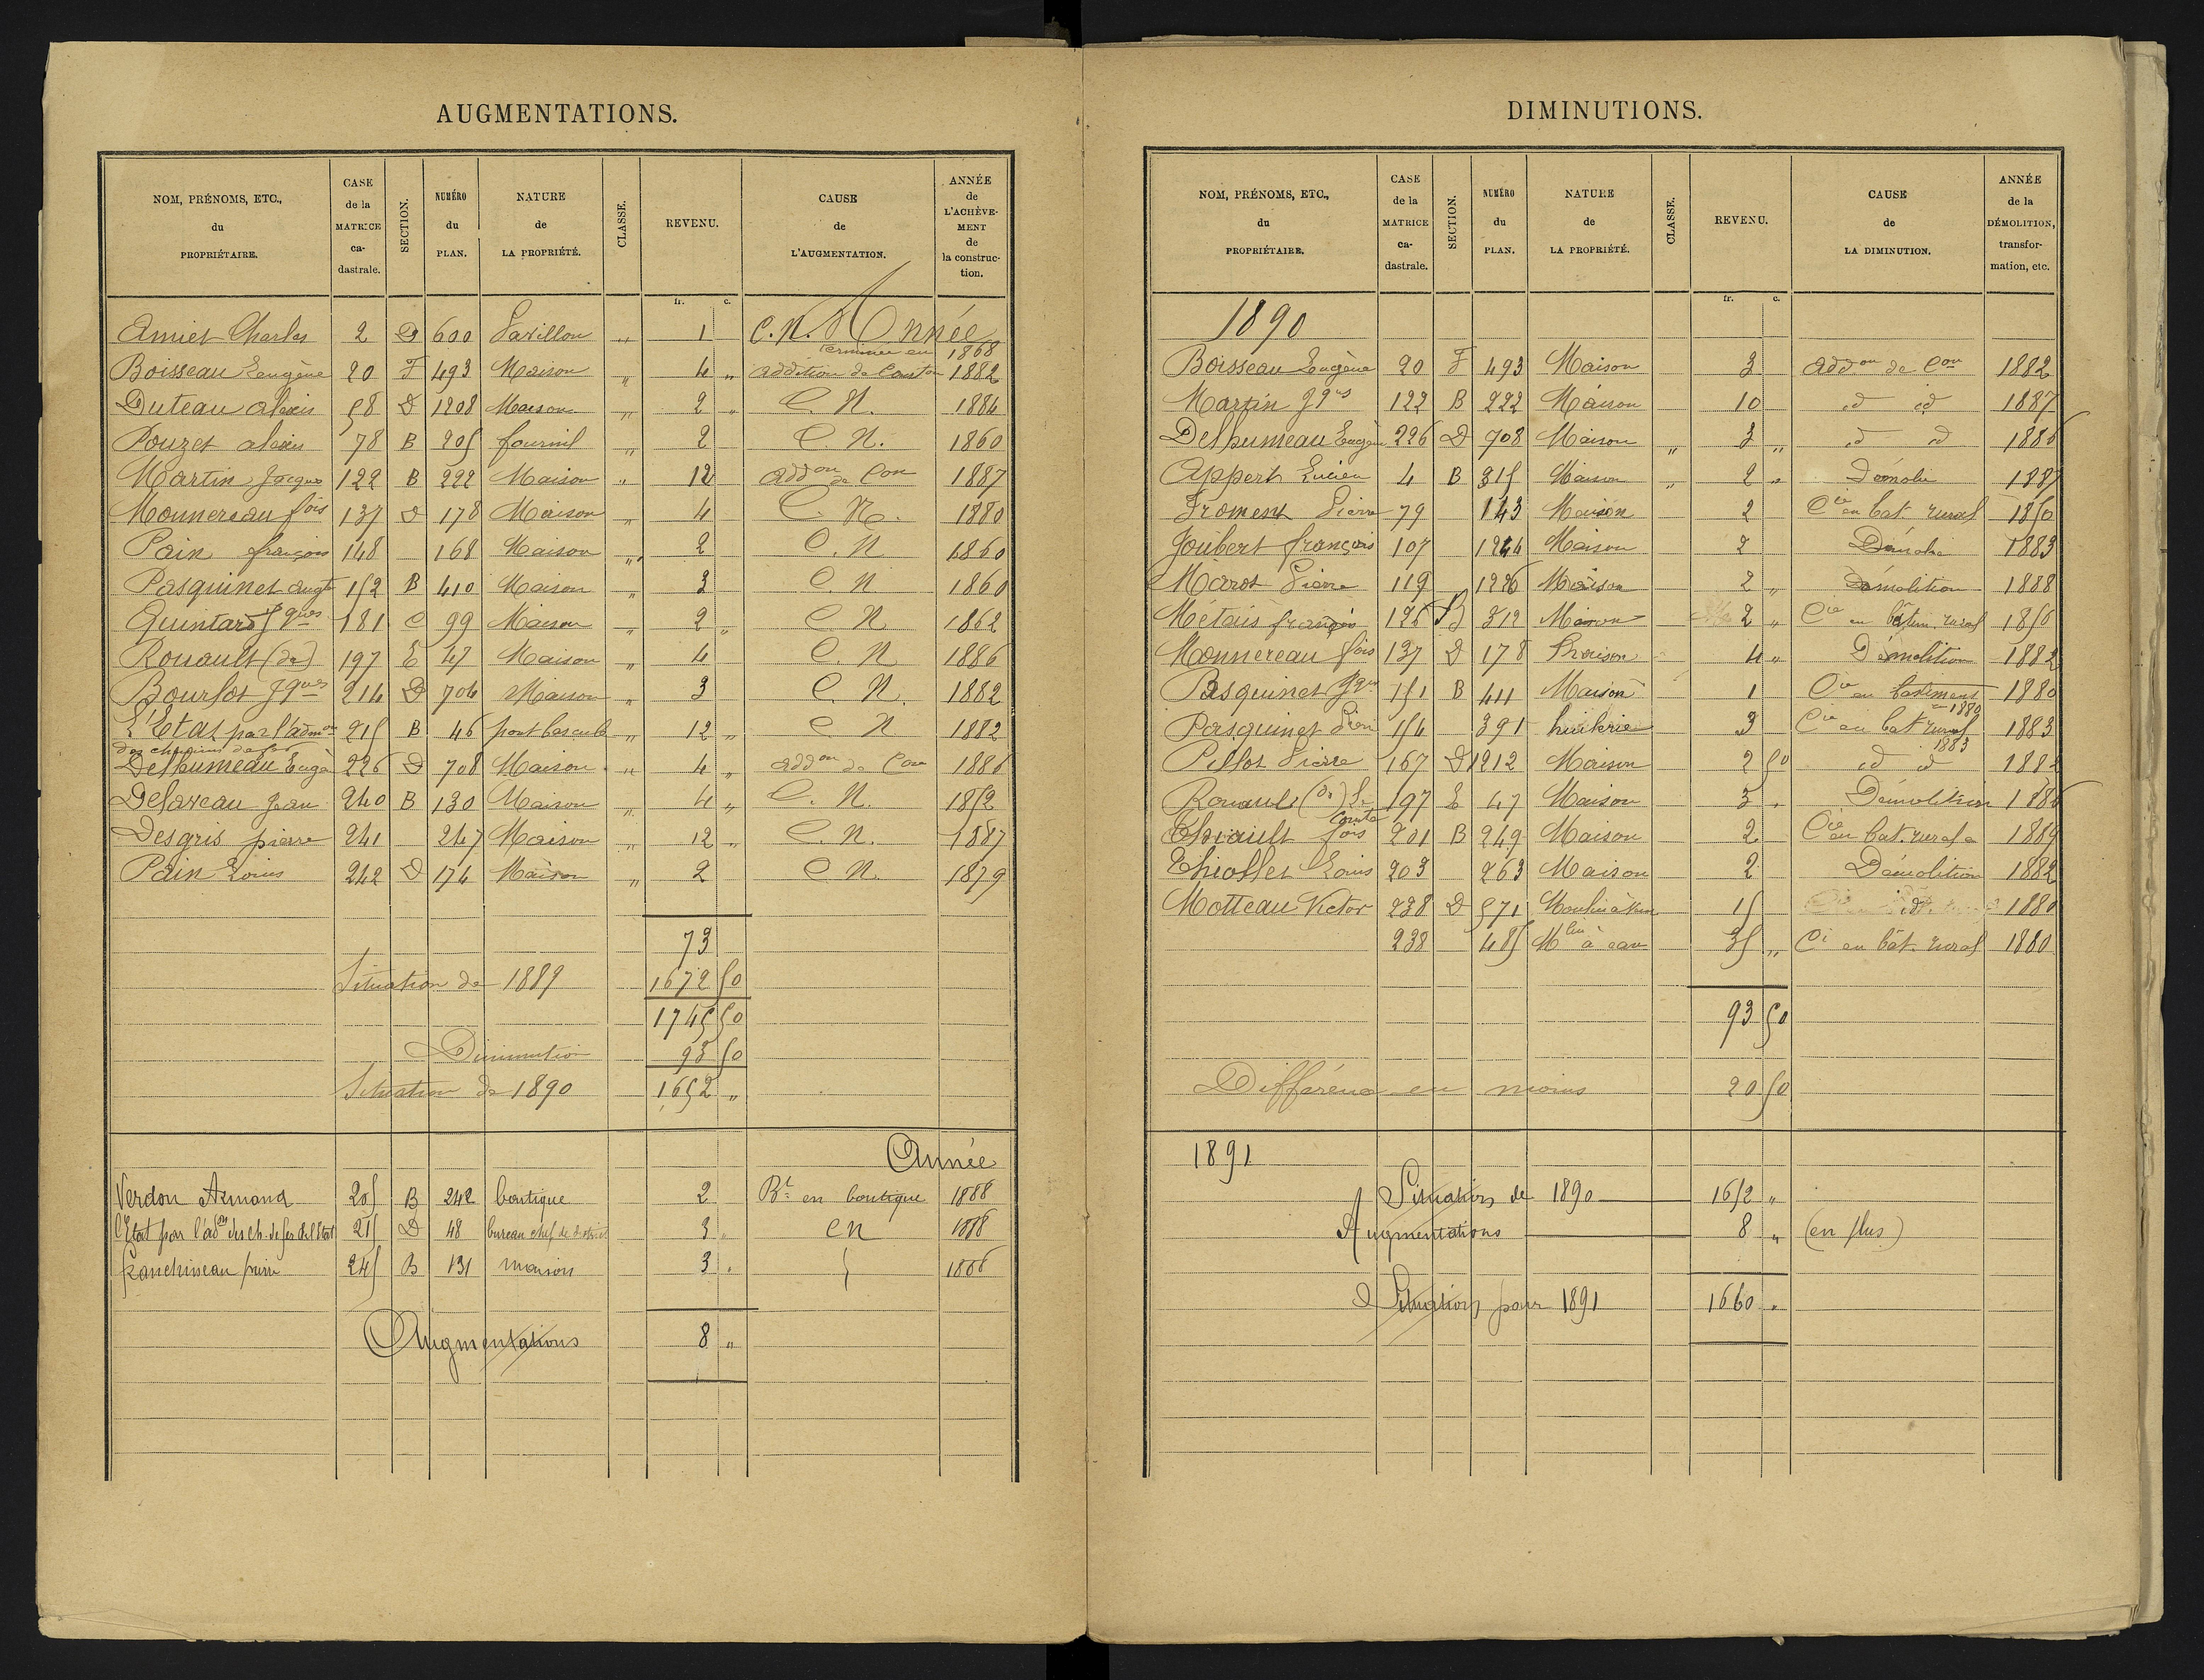 AUGMENTATIONS.
NOM, PRÉNOMS, ETC., du PROPRIÉTAIRE. CASE de la MATRICE ca-dastrale. SECTION. NUMÉRO du PLAN. NATURE de LA PROPRIÉTÉ. CLASSE. REVENU. CAUSE de L'AUGMENTATION. ANNÉE de L'ACHÈVE-MENT de la construc-tion.
fr. c.
Année
Amiet Charles 2 D 600 Pavillon „ 1 C.N. terminée en 1868
Boisseau Eugène 20 F 493 Maison „ 4 „ addition de Conston 1882
Duteau alexis 58 D 1208 Maison „ 2 „ C. N. 1884
Pouzet alexis 78 B 205 fournil „ 2 C. N. 1860
Martin Jacques 122 B 222 Maison „ 12 addon de Con 1887
Monnereau fois 137 D 178 Maison „ 4 C. N. 1880
Pain françois 148 168 Maison „ 2 C. N 1860
Pasquinet augte 152 B 410 Maison „ 3 C. N 1860
Quintard Jques 181 C 99 Maison „ 2 „ C N 1862
Rouault (de) 197 E 47 Maison „ 4 C. N 1886
Bourlot Jques 214 D 704 Maison „ 3 C. N. 1882
L'Etat par l'admon des chemins de fer 215 B 46 pont bascule „ 12 „ C N 1882
Delhumeau Eugè 226 D 708 Maison „ 4 „ addon de Con 1886
Delaveau Jean 240 B 130 Maison „ 4 „ C. N. 1852
Desgris pierre 241 247 Maison „ 12 „ C. N. 1887
Pain Louis 242 D 174 Maison „ 2 C N. 1879
73
Situation de 1889 1672 50
1745 50
Diminution 93 50
Situation de 1890 1652 „
Année
Verdon Armand 205 B 242 boutique 2 Bt en boutique 1888
l'Etat par l'adon des ch. de fer de l'Etat 215 D 48 bureau chef de district 3 „ CN 1888
pierre 245 B 131 maison 3 „ 1886
Augmentations 8 „
DIMINUTIONS.
NOM, PRÉNOMS, ETC., du PROPRIÉTAIRE. CASE de la MATRICE ca-dastrale. SECTION. NUMÉRO du PLAN. NATURE de LA PROPRIÉTÉ. CLASSE. REVENU. CAUSE de LA DIMINUTION. ANNÉE de la DÉMOLITION, transfor-mation, etc.
fr. c.
1890
Boisseau Eugène 20 F 493 Maison 3 addon de Con 1882
Martin Jques 122 B 222 Maison 10 id id 1887
Delhumeau Eugène 226 D 708 Maison „ 3 „ id id 1886
Appert Lucien 4 B 315 Maison „ 2 „ Démolie 1887
Froment Pierre 79 143 Maison 2 Cie en bat rural 1850
Joubert françois 107 1244 Maison 2 Démolie 1883
Marot Pierre 119 1226 Maison 2 „ Démolition 1888
Métais françois 126 B 312 Maison 2 „ Cie en bâtim. rural 1856
Monnereau fois 137 D 178 Maison 4 „ Démolition 1882
Pasquinet Jques 151 B 411 Maison 1 Cie en batiment en 1880 1880
Pasquinet 154 391 huilerie 3 Cie en bat rural 1883 1883
Pillot Pierre 167 D 1212 Maison 2 50 id id 1882
Rouault (de) Le Comte 197 E 47 Maison 3 „ Démolition 1886
Thiault fois 201 B 249 Maison 2 Cie en bat. rural 1889
Thiollet Louis 203 263 Maison 2 Démolition 1882
Motteau Victor 238 D 571 Moulin à vent 15 id. 1880
238 485 Mlin à eau 35 „ Ci en bât. rural 1880
93 50
Différence en moins 20 50
1891
Situation de 1890 1652 „
Augmentations 8 „ (en plus)
Situation pour 1891 1660 „